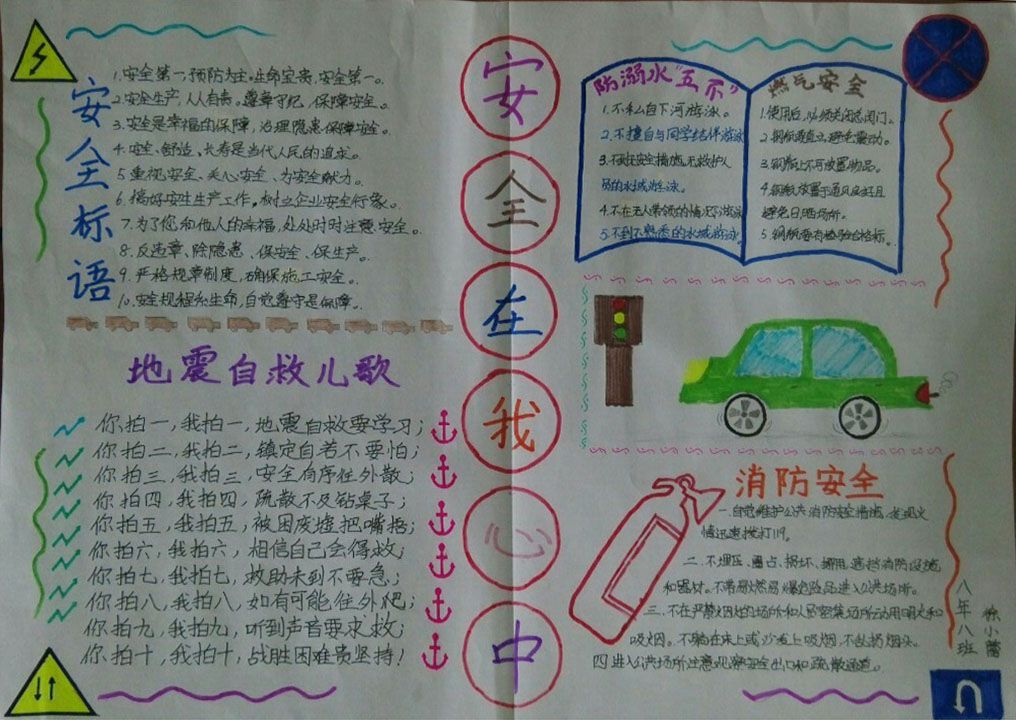 安全标语
1.安全第一,预防为主。生命宝贵,安全第一。
2.安全生产,人人有责。遵章守纪,保障安全。
3.安全是幸福的保障,治理隐患保障安全。
4.安全、舒适、长寿是当代人民的追求。
5.重视安全、关心安全、为安全献力。
6.搞好安生生产工作,树立企业安全形象。
7.为了您和他人的幸福,处处时时注意安全。
8.反违章、除隐患、保安全、保生产。
9.严格规章制度,确保施工安全。
10.安全规程系生命,自觉遵守是保障。
地震自救儿歌
你拍一,我拍一,地震自救要学习;
你拍二,我拍二,镇定自若不要怕;
你拍三,我拍三,安全有序往外散;
你拍四,我拍四,疏散不及钻桌子;
你拍五,我拍五,被困废墟把嘴捂;
你拍六,我拍六,相信自己会得救;
你拍七,我拍七,救助未到不要急;
你拍八,我拍八,如有可能往外爬;
你拍九,我拍九,听到声音要求救;
你拍十,我拍十,战胜困难贵坚持!
安全在我心中
防溺水"五不"
1.不私自下河游泳。
2.不擅自与同学结伴游泳
3.不到无安全措施,无救护人
员的水域游泳。
4.不在无人带领的情况下游泳
5.不到不熟悉的水域游泳。
燃气安全
1.使用后,必须关闭总阀门。
2.钢瓶直立,避免震动。
3.钢瓶上不可放置物品。
4.钢瓶放置于通风良好且
避免日晒场所。
5.钢瓶要有检验合格标。
消防安全
一.自觉维护公共消防安全措施,发现火
情迅速拨打119。
二.不埋压、圈占、损坏、挪用、遮挡消防设施
和器材。不带易燃易爆危险品进入公共场所。
三.不在严禁烟火的场所和人员密集场所动用明火和
吸烟。不躺在床上或沙发上吸烟,不乱扔烟头。
四.进入公共场所注意观察安全出口和疏散通道。
八年八班
徐小蕾